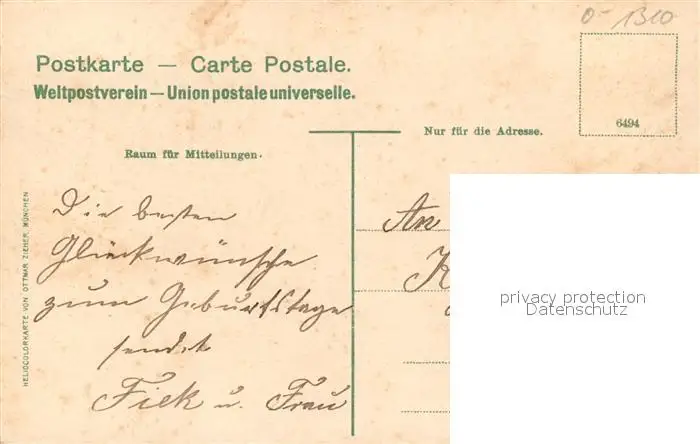 0- 1310
Postkarte — Carte Postale.
Weltpostverein — Union postale universelle.
6494
Nur für die Adresse.
Raum für Mitteilungen.
Die besten
Glückwünsche
zum Geburtstage
sendet
Fiek u. Frau
An
K
privacy protection
Datenschutz
HELIOCOLORKARTE VON OTTMAR ZIEHER, MÜNCHEN